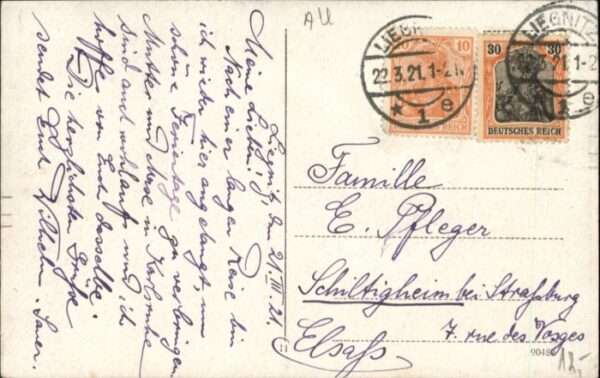 AU
Liegnitz, den 21. III. 21.
Meine Lieben!
Nach einer langen Reise bin
ich wieder hier angelangt, um
schöne Ferientage zu verbringen.
Mutter und in Karlsruhe
sind auch wohlauf und ich
hoffe von Euch dasselbe.
Die herzlichsten Grüße
sendet Euch Wilhelm
LIEG
22.3.21.1-2
* 1 e
10
REICH
30 30
DEUTSCHES REICH
LIEGNITZ
.3.21.1-2
e
Familie
E. Pfleger
Schiltigheim bei Straßburg
7. rue des Vosges
Elsaß
11
9048
12,-